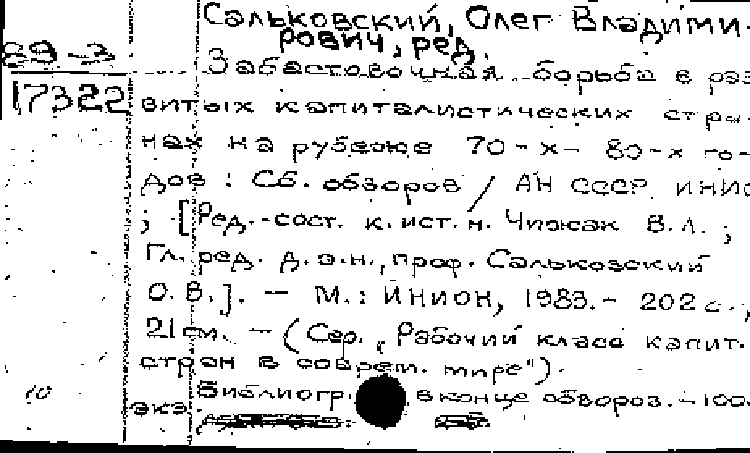 Сальковский, Олег Владими-
рович, ред.
89-3
Забастовочная борьба в раз
17322
витых капиталистических стра-
нах на рубеже 70-х- 80-х го-
дов : Сб. обзоров / АН СССР. ИНИО
; [Ред.-сост. к.ист.н. Чижак В.Л. ;
Гл. ред. д.э.н., проф. Сальковский
О.В.]. - М.: ИНИОН, 1983.- 202 с.,
21 см. - (Сер. "Рабочий класс капит.
стран в соврем. мире").
10
Библиогр. в конце обзоров.-100
экз.